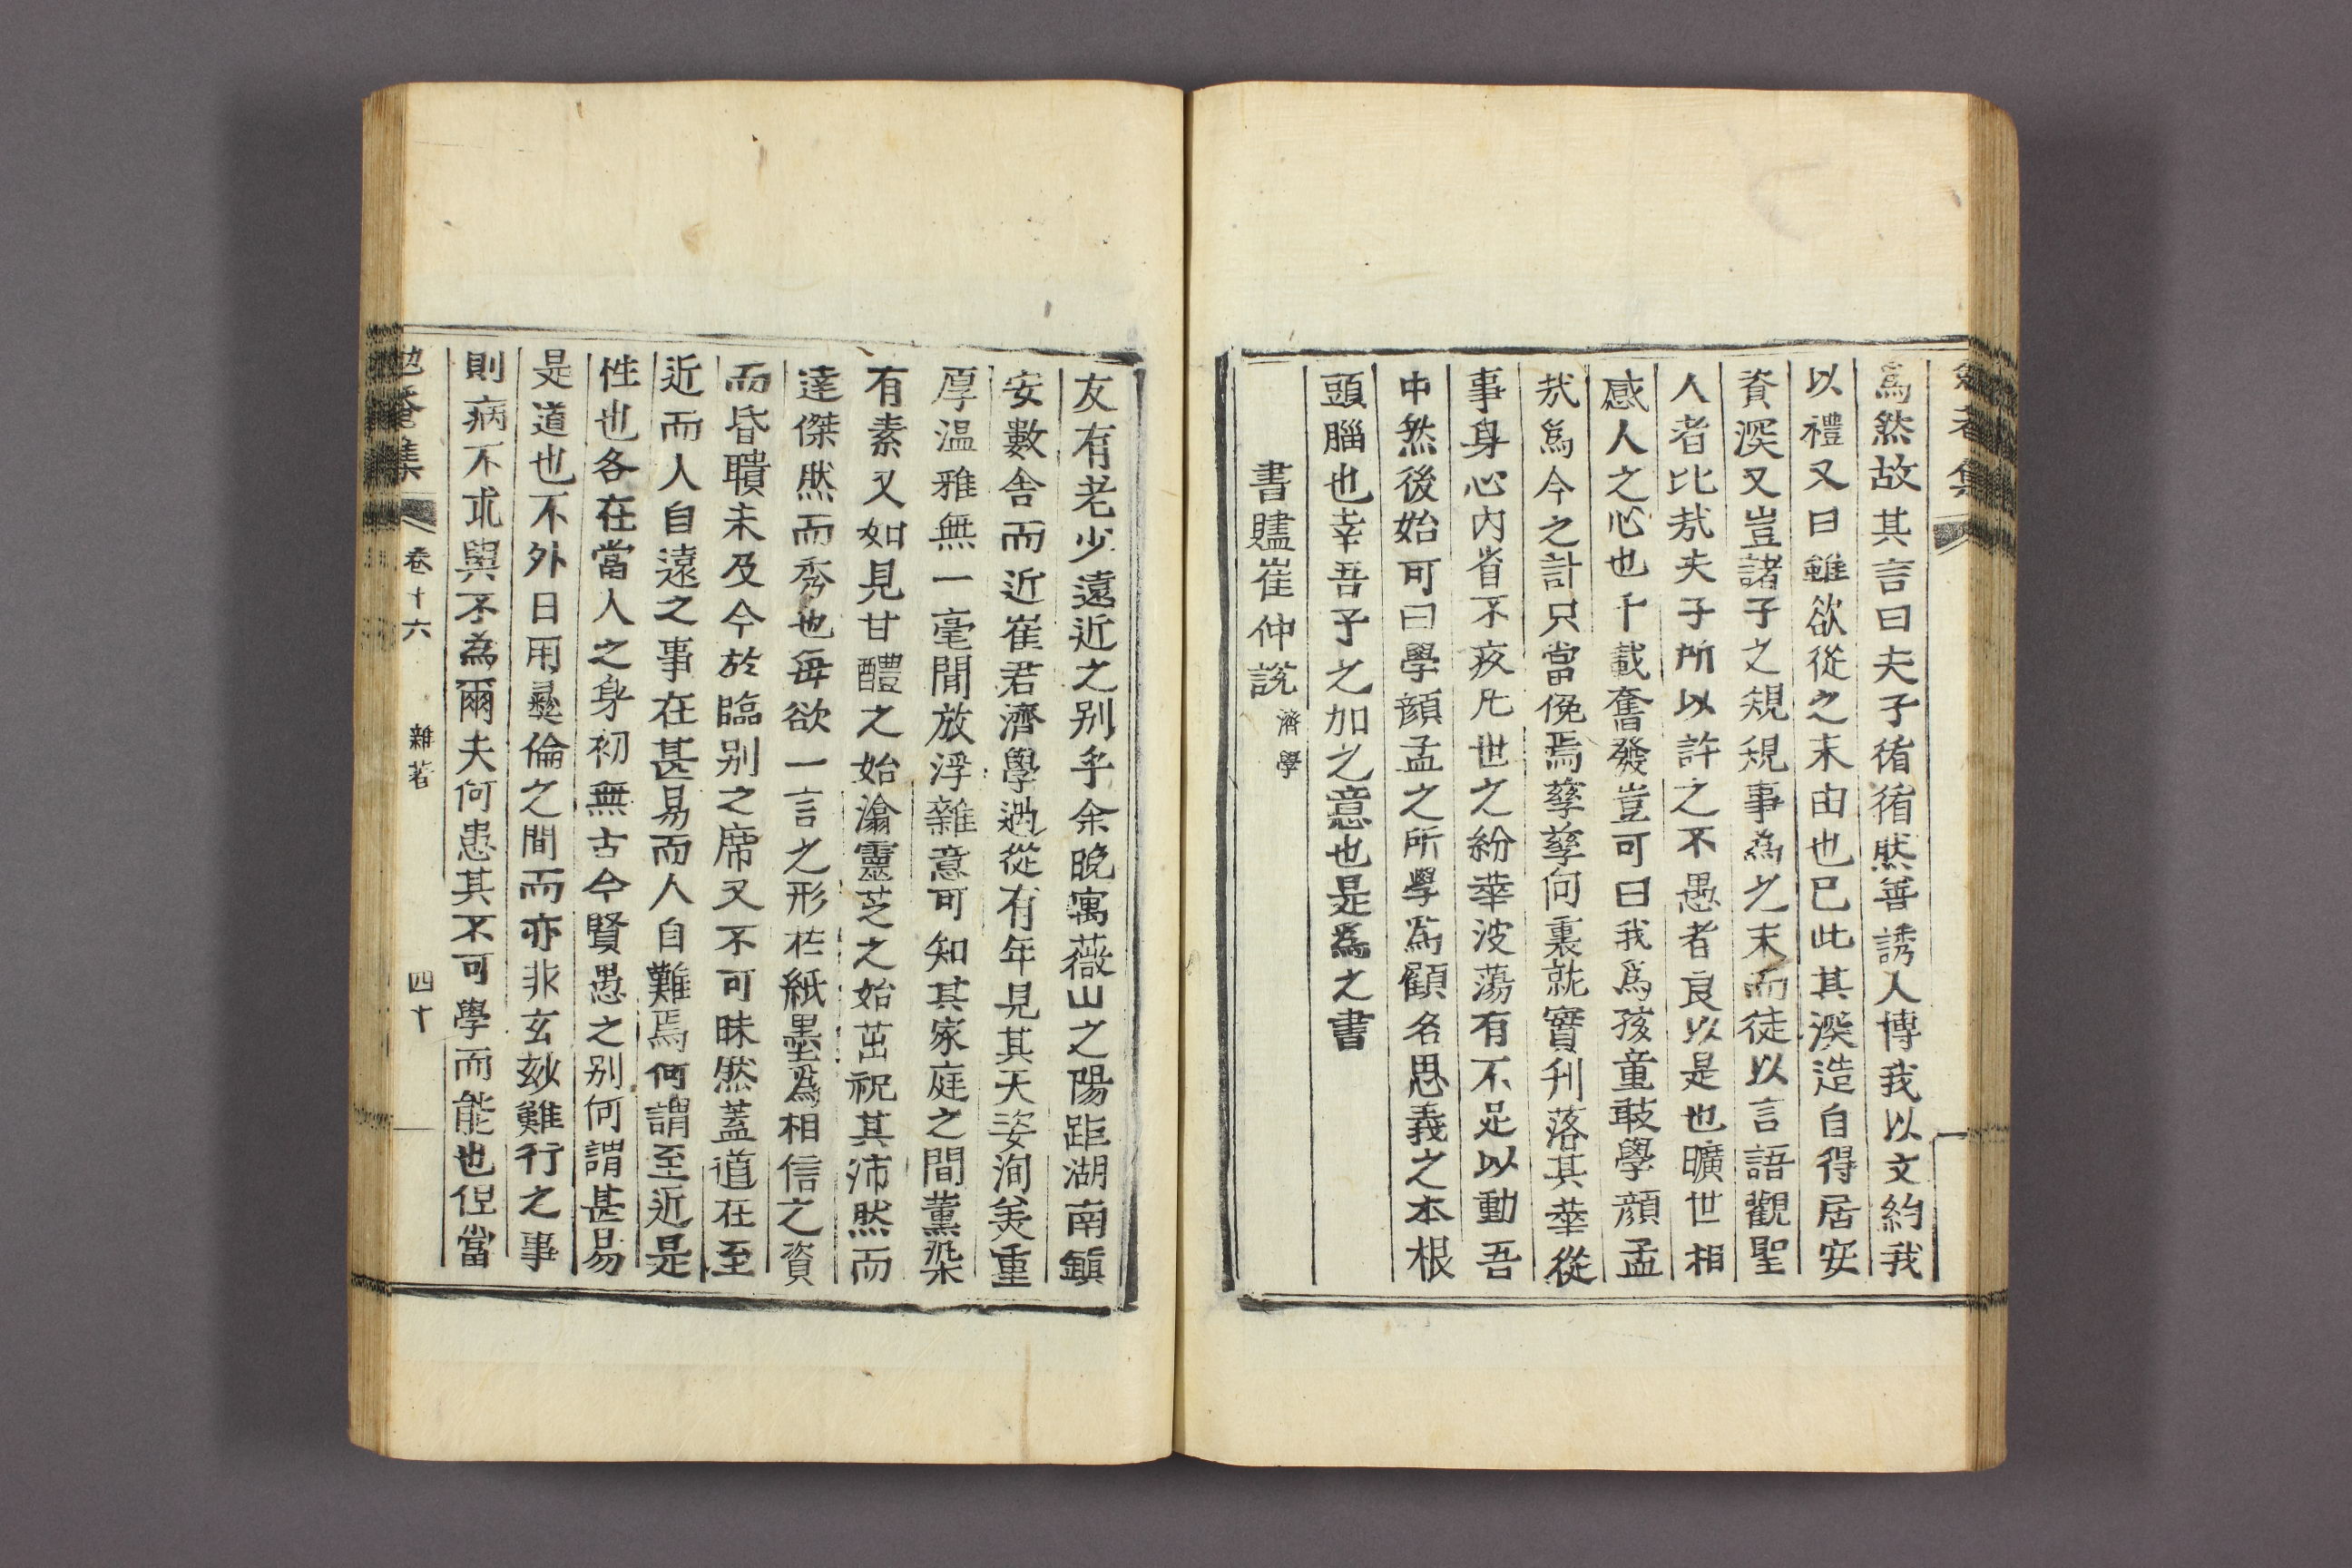 爲然故其言曰夫子循循然善誘人博我以文約我
以禮又曰雖欲從之末由也已此其深造自得居安
資深又豈諸子之規規事為之末而徒以言語觀聖
人者比㢤夫子所以許之不愚者良以是也曠世相
感人之心也千載奮發豈可曰我爲孩童敢學顔孟
㢤爲今之計只當俛焉孳孳向裏就實刋落其華從
事身心内省不疚凡世之紛華波蕩有不足以動吾
中然後始可曰學顔孟之所學爲顧名思義之本根
頭腦也幸吾予之加之意也是爲之書
書贐崔仲說濟學
友有老少遠近之别乎余晚寓薇山之陽距湖南鎮
安數舍而近崔君濟學過從有年見其天姿洵美重
厚温雅無一毫閒放浮雜意可知其家庭之間薰染
有素又如見甘醴之始瀹靈芝之始茁祝其沛然而
達傑然而秀也每欲一言之形在紙墨爲相信之資
而昏聵未及今於臨别之席又不可昧然蓋道在至
近而人自遠之事在甚易而人自難焉何謂至近是
性也各在當人之身初無古今賢愚之别何謂甚易
是道也不外日用彛倫之間而亦非玄玅難行之事
則病不求與不為爾夫何患其不可學而能也但當
勉菴集 卷十六 雜著 四十